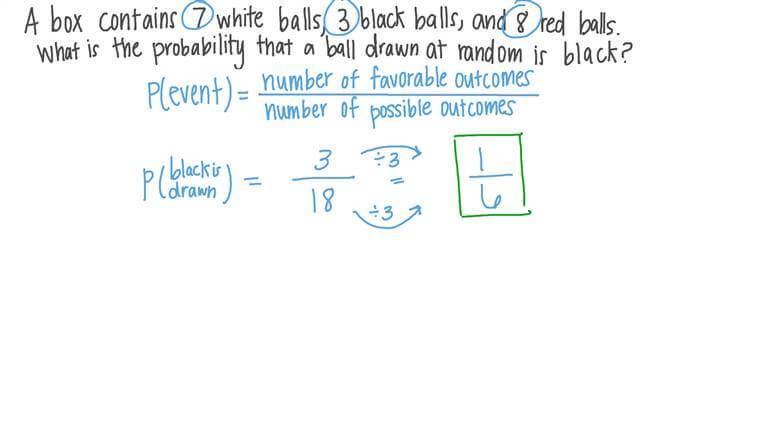 A box contains 7 white balls, 3 black balls, and 8 red balls.
What is the probability that a ball drawn at random is black?
P(event) = number of favorable outcomes
number of possible outcomes
P(black is drawn) = 3/18 ÷3 = ÷3 1/6